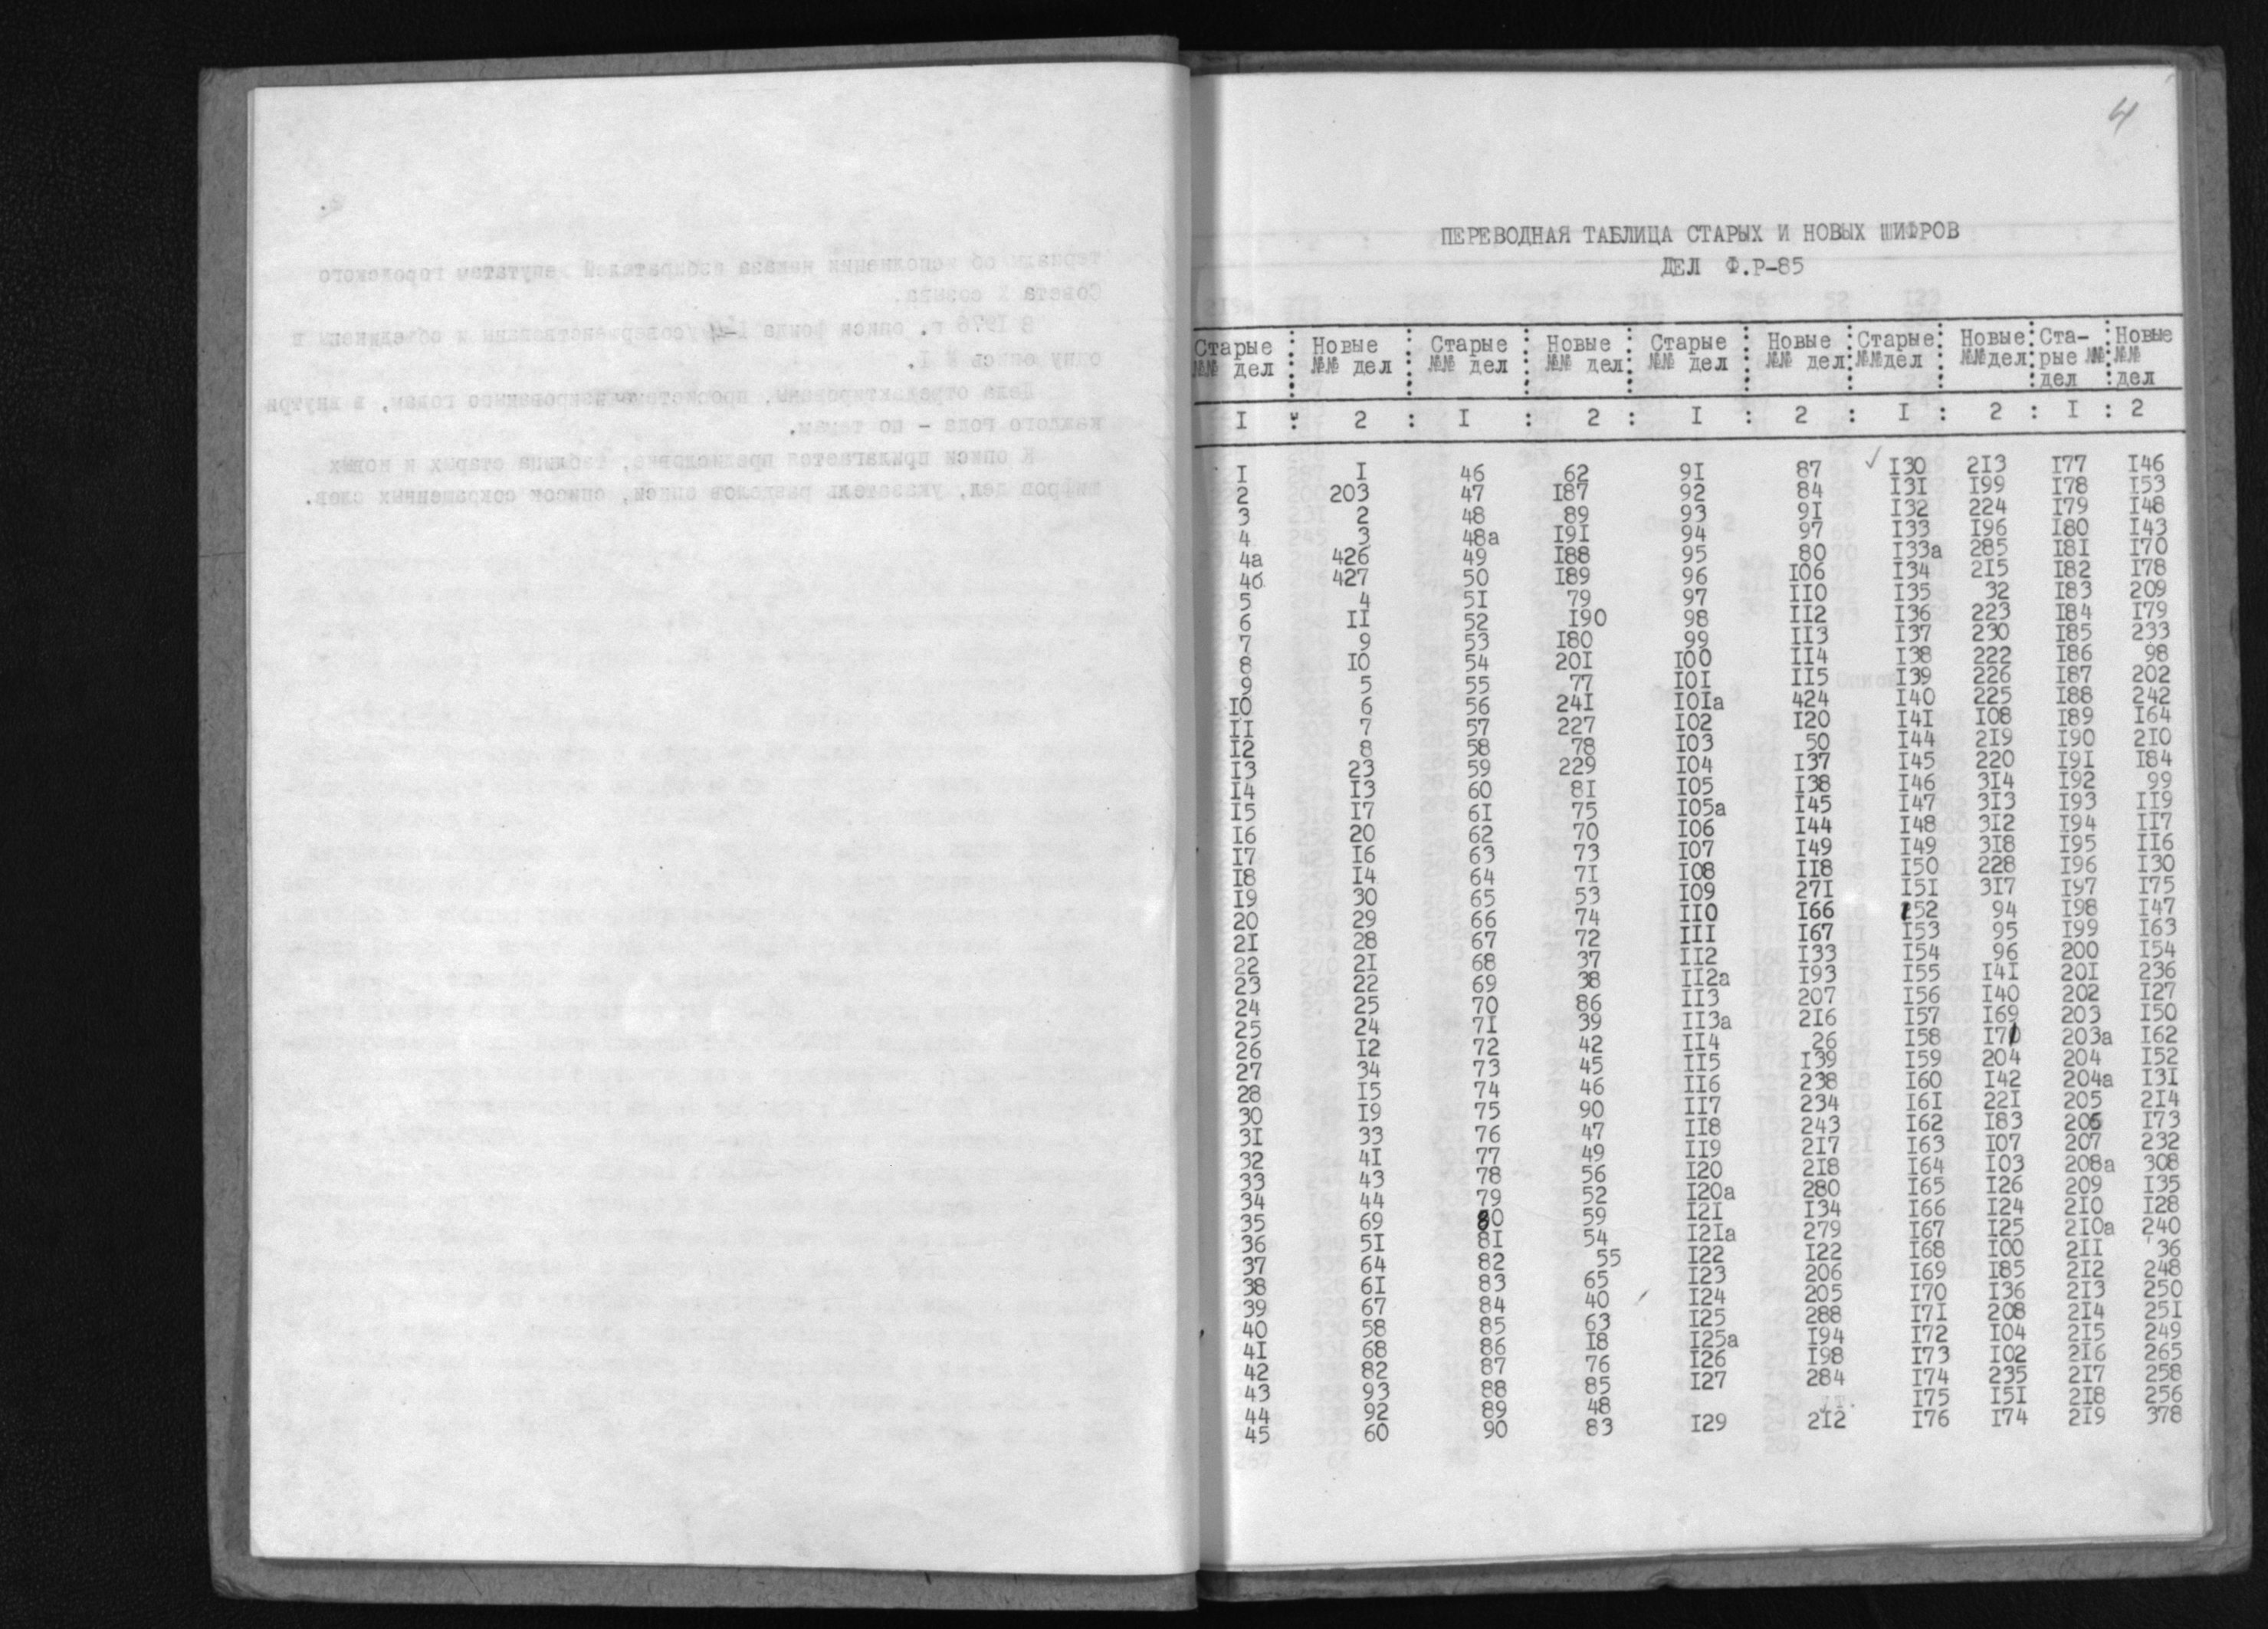 4
ПЕРЕВОДНАЯ ТАБЛИЦА СТАРЫХ И НОВЫХ ШИФРОВ
ДЕЛ Ф.Р-85
Старые : Новые : Старые : Новые : Старые : Новые : Старые : Новые : Ста- : Новые
№№ дел : №№ дел : №№ дел : №№ дел : №№ дел : №№ дел : №№дел : №№дел : рые №№ : №№
дел : дел
I : 2 : I : 2 : I : 2 : I : 2 : I : 2
I I 46 62 9I 87 I30 2I3 I77 I46
2 203 47 I87 92 84 I3I I99 I78 I53
3 2 48 89 93 9I I32 224 I79 I48
4 3 48а I9I 94 97 I33 I96 I80 I43
4а 426 49 I88 95 80 I33а 285 I8I I70
4б 427 50 I89 96 I06 I34 2I5 I82 I78
5 4 5I 79 97 II0 I35 32 I83 209
6 II 52 I90 98 II2 I36 223 I84 I79
7 9 53 I80 99 II3 I37 230 I85 233
8 I0 54 20I I00 II4 I38 222 I86 98
9 5 55 77 I0I II5 I39 226 I87 202
I0 6 56 24I I0Iа 424 I40 225 I88 242
II 7 57 227 I02 I20 I4I I08 I89 I64
I2 8 58 78 I03 50 I44 2I9 I90 2I0
I3 23 59 229 I04 I37 I45 220 I9I I84
I4 I3 60 8I I05 I38 I46 3I4 I92 99
I5 I7 6I 75 I05а I45 I47 3I3 I93 II9
I6 20 62 70 I06 I44 I48 3I2 I94 II7
I7 I6 63 73 I07 I49 I49 3I8 I95 II6
I8 I4 64 7I I08 II8 I50 228 I96 I30
I9 30 65 53 I09 27I I5I 3I7 I97 I75
20 29 66 74 II0 I66 I52 94 I98 I47
2I 28 67 72 III I67 I53 95 I99 I63
22 2I 68 37 II2 I33 I54 96 200 I54
23 22 69 38 II2а I93 I55 I4I 20I 236
24 25 70 86 II3 207 I56 I40 202 I27
25 24 7I 39 II3а 2I6 I57 I69 203 I50
26 I2 72 42 II4 26 I58 I7I 203а I62
27 34 73 45 II5 I39 I59 204 204 I52
28 I5 74 46 II6 238 I60 I42 204а I3I
30 I9 75 90 II7 234 I6I 22I 205 2I4
3I 33 76 47 II8 243 I62 I83 206 I73
32 4I 77 49 II9 2I7 I63 I07 207 232
33 43 78 56 I20 2I8 I64 I03 208а 308
34 44 79 52 I20а 280 I65 I26 209 I35
35 69 80 59 I2I I34 I66 I24 2I0 I28
36 5I 8I 54 I2Iа 279 I67 I25 2I0а 240
37 64 82 55 I22 I22 I68 I00 2II 36
38 6I 83 65 I23 206 I69 I85 2I2 248
39 67 84 40 I24 205 I70 I36 2I3 250
40 58 85 63 I25 288 I7I 208 2I4 25I
4I 68 86 I8 I25а I94 I72 I04 2I5 249
42 82 87 76 I26 I98 I73 I02 2I6 265
43 93 88 85 I27 284 I74 235 2I7 258
44 92 89 48 I75 I5I 2I8 256
45 60 90 83 I29 2I2 I76 I74 2I9 378